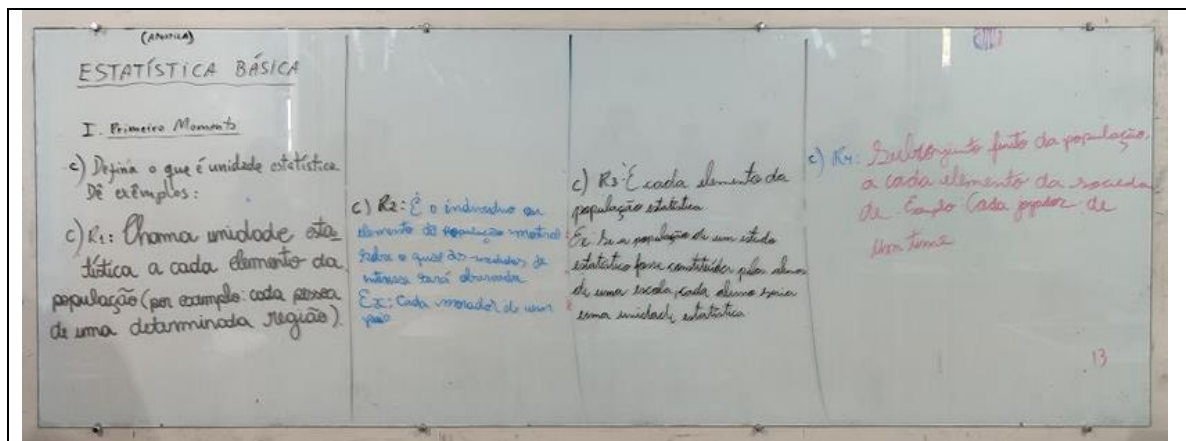 (APOSTILA)
ESTATÍSTICA BÁSICA
I. Primeiro Momento
c) Defina o que é unidade estatística.
Dê exêmplos:
c) R1: Chama unidade esta_
tística a cada elemento da
população (por exemplo: cada pessoa
de uma determinada região).
c) R2: É o individuo ou
elemento da população
sobre o qual as medidas de
interesse será observada
Ex: Cada morador de um
país
c) R3: É cada elemento da
população estatística
Ex Se a população de um estudo
estatístico fosse constituída pelos alunos
de uma escola, cada aluno seria
uma unidade estatística
c) R4: Subconjunto finito da população,
a cada elemento da socieda
de Cada jogador de
um time
13